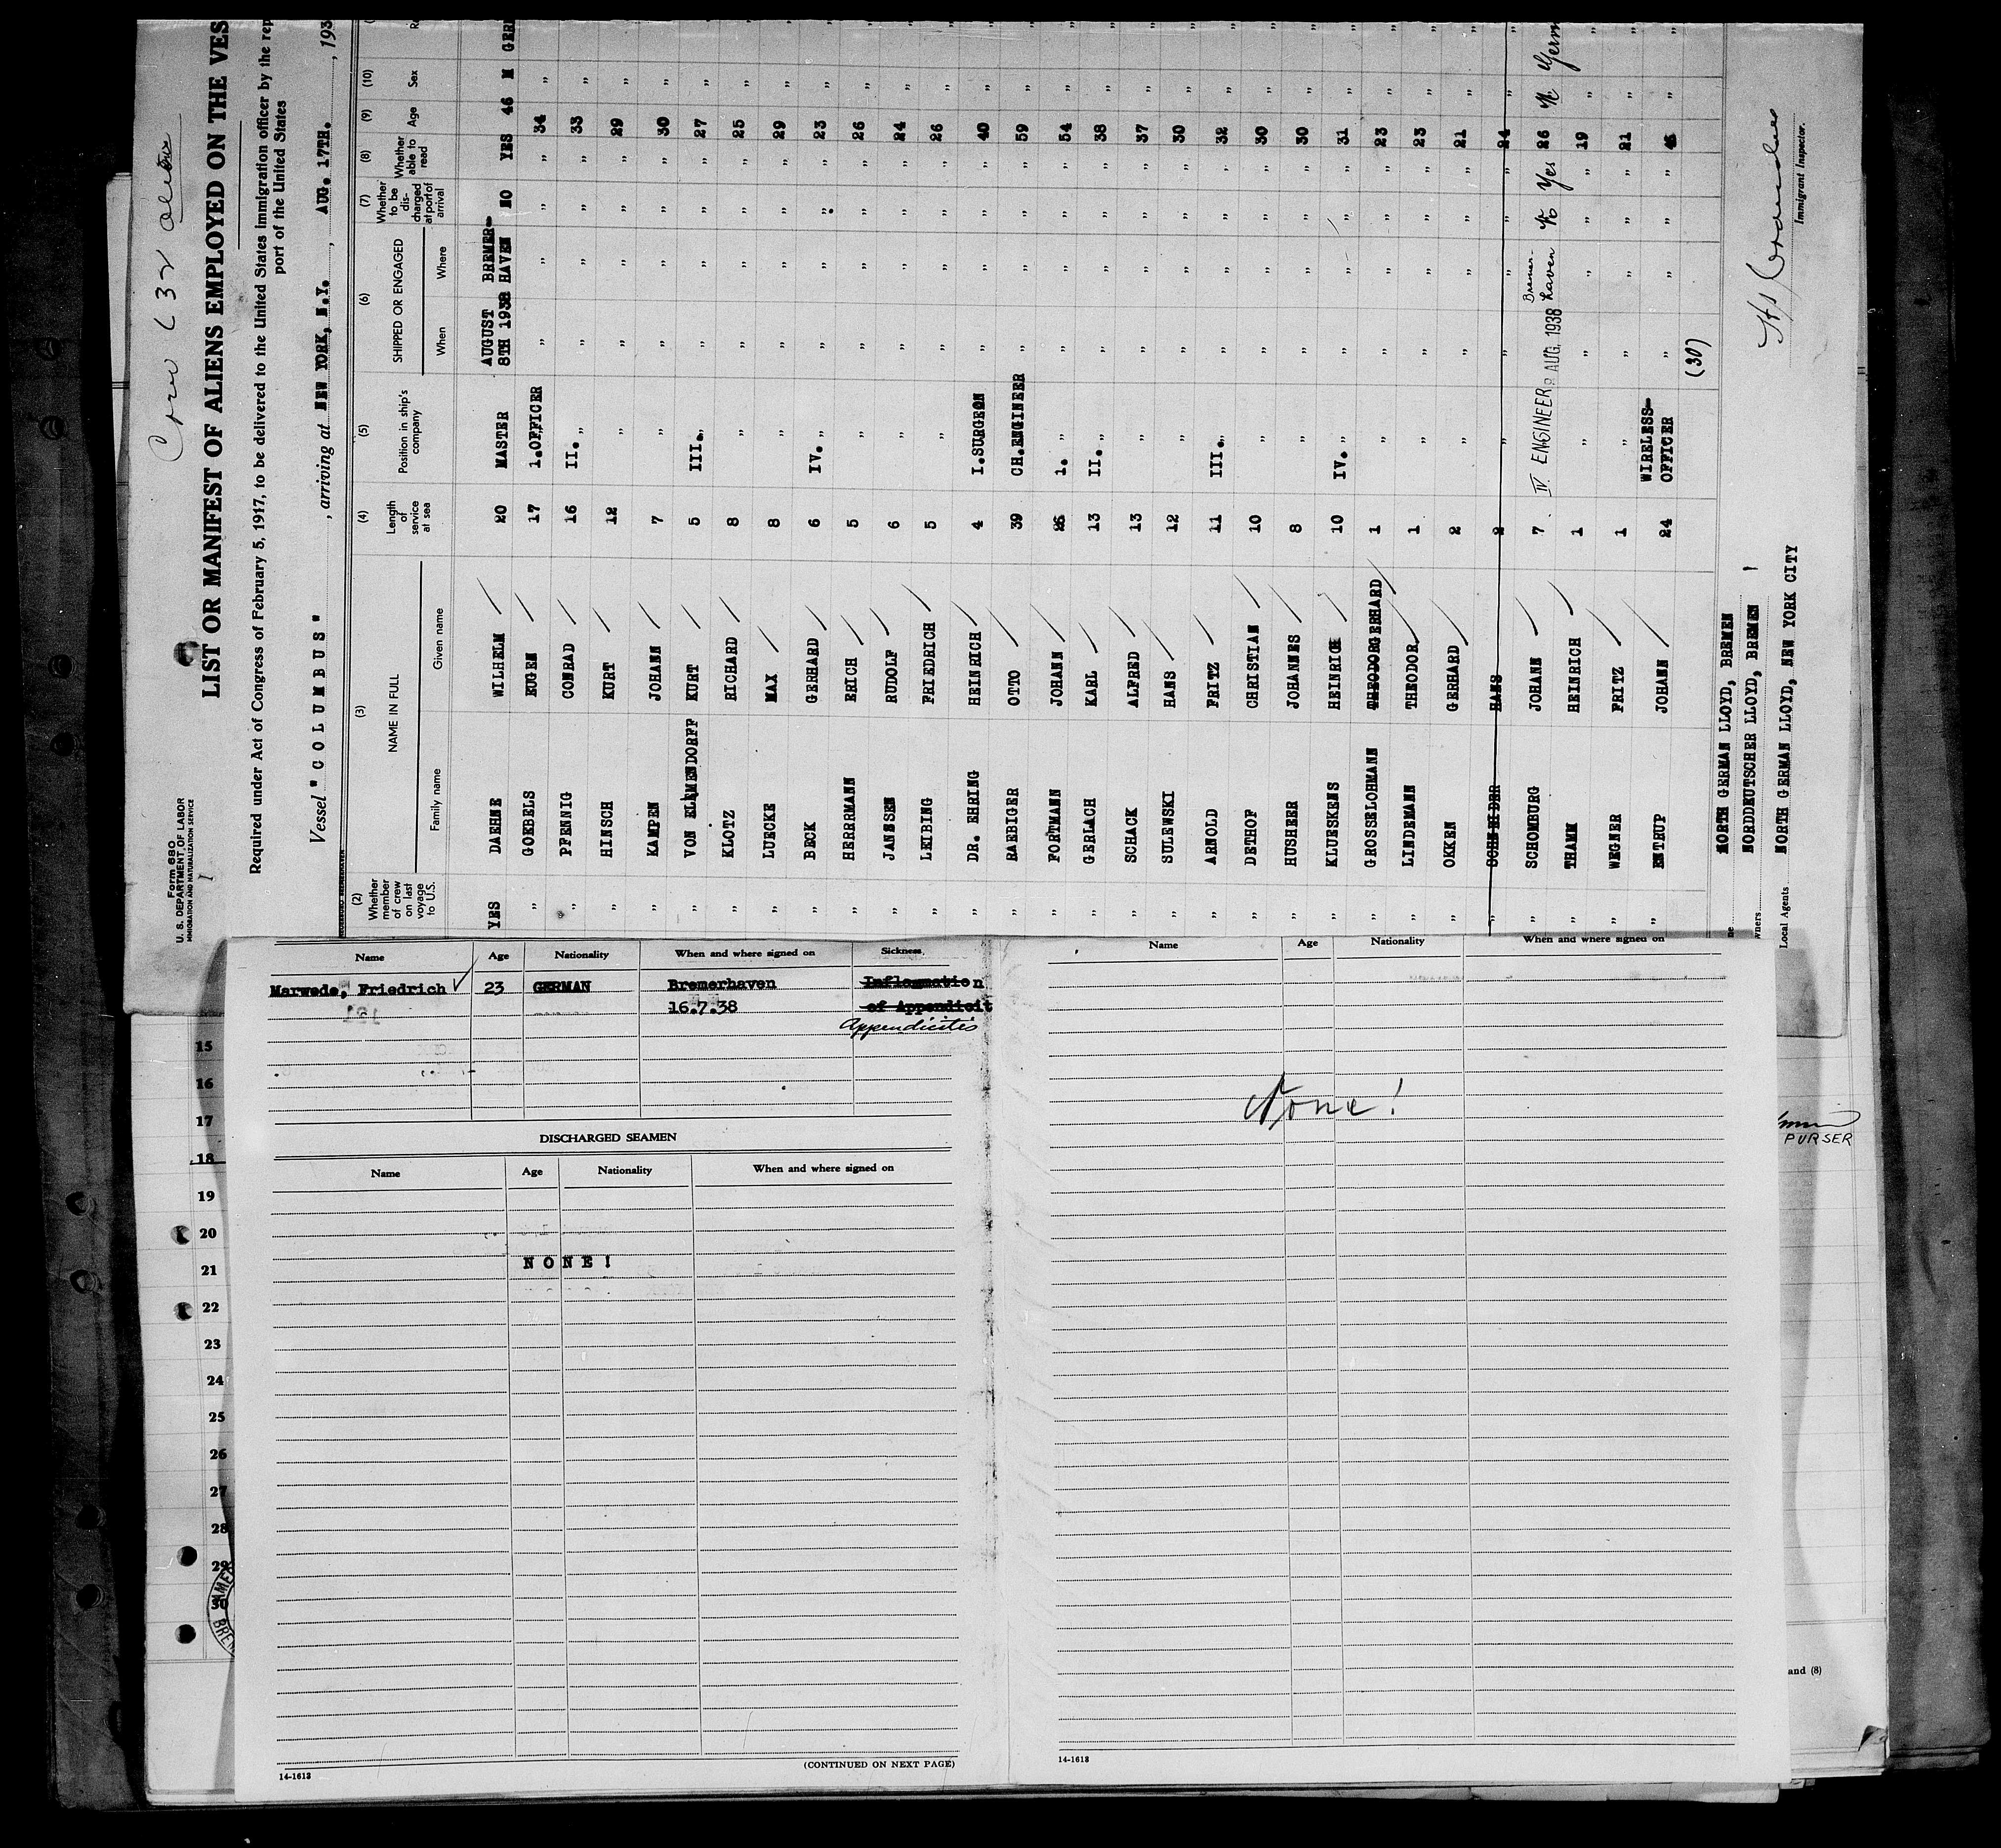 Form 680
U. S. DEPARTMENT OF LABOR
IMMIGRATION AND NATURALIZATION SERVICE
1
Crew
LIST OR MANIFEST OF ALIENS EMPLOYED ON THE VES
Required under Act of Congress of February 5, 1917, to be delivered to the United States immigration officer by the rep
port of the United States
Vessel " C O L U M B U S " , arriving at NEW YORK, N.Y. , AUG. 17TH. , 193
(2) (3) (4) (5) (6) (7) (8) (9) (10)
Whether member of crew on last voyage to U.S. NAME IN FULL Family name Given name Length of service at sea Position in ship's company SHIPPED OR ENGAGED When Where Whether to be discharged at port of arrival Whether able to read Age Sex
YES DAEHNE WILHELM 20 MASTER AUGUST 8TH 1938 BREMER-HAVEN NO YES 46 M GER
" GOEBELS EUGEN 17 1.OFFICER " " " " 34 "
" PFENNIG CONRAD 16 II. " " " " " 33 "
" HINSCH KURT 12 " " " " " 29 "
" KAMPEN JOHANN 7 " " " " " 30 "
" VON ELMENDORFF KURT 5 III. " " " " " 27 "
" KLOTZ RICHARD 8 " " " " " 25 "
" LUECKE MAX 8 " " " " " 29 "
" BECK GERHARD 6 IV. " " " " " 23 "
" HERRRMANN ERICH 5 " " " " " 26 "
" JANSSEN RUDOLF 6 " " " " " 24 "
" LEIBING FRIEDRICH 5 " " " " " 26 "
" DR. EHRING HEINRICH 4 I.SURGEON " " " " 40 "
" RAEBIGER OTTO 39 CH.ENGINEER " " " " 59 "
" FORTMANN JOHANN 25 1. " " " " " 54 "
" GERLACH KARL 13 II. " " " " " 38 "
" SCHACK ALFRED 13 " " " " " 37 "
" SULEWSKI HANS 12 " " " " " 30 "
" ARNOLD FRITZ 11 III. " " " " " 32 "
" DETHOF CHRISTIAN 10 " " " " " 30 "
" HUSHEER JOHANNES 8 " " " " " 30 "
" KLUESKENS HEINRICH 10 IV. " " " " " 31 "
" GROSSELOHMANN THEODOR GERHARD 1 " " " " " 23 "
" LINDEMANN THEODOR 1 " " " " " 23 "
" OKKEN GERHARD 2 " " " " " 21 "
" SCHNEIDER HANS 2 " " " " " 24 "
" SCHOMBURG JOHANN 7 IV ENGINEER 9 AUG. 1938 Bremer-haven No Yes 26 M Germ
" THAMM HEINRICH 1 " " " " " 19 "
" WEGNER FRITZ 1 " " " " " 21 "
" ENTRUP JOHANN 24 WIRELESS-OFFICER " " " " 45 "
(30)
NORTH GERMAN LLOYD, BREMEN
wners NORDDEUTSCHER LLOYD, BREMEN
Local Agents NORTH GERMAN LLOYD, NEW YORK CITY
Immigrant Inspector.
Name Age Nationality When and where signed on Sickness
Marwede, Friedrich 23 GERMAN Bremerhaven Inflammation
16.7.38 of Appendicit
Appendicitis
DISCHARGED SEAMEN
Name Age Nationality When and where signed on
N O N E !
(CONTINUED ON NEXT PAGE)
14-1613
Name Age Nationality When and where signed on
None!
14-1613
15
16
17
18
19
20
21
22
23
24
25
26
27
28
29
30
PURSER
and (8)